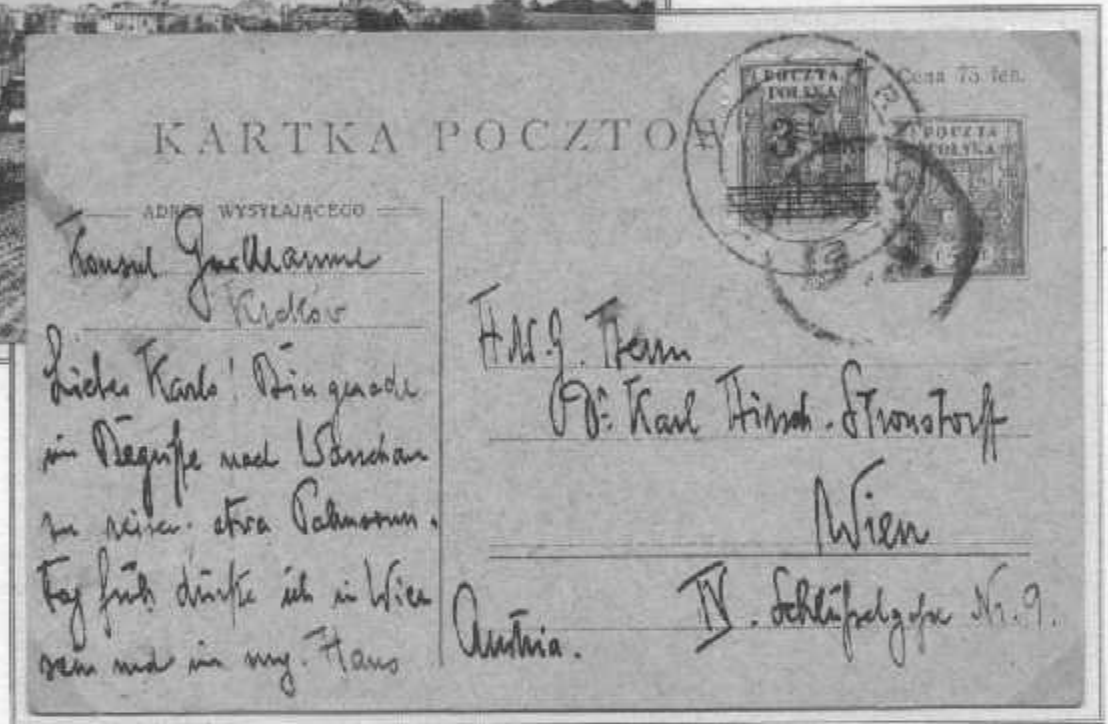 KARTKA POCZTOW
Cena 75 fen.
POCZTA
POLSKA
3
POCZTA
POLSKA
ADRES WYSYŁAJĄCEGO
Konsul
Kraków
Liebes Karlo! Bin gerade
im Begriffe nach Warschau
zu reisen. etwa Palmsonn-
tag früh dürfte ich in Wien
sein und in
H.W.G. Herrn
Dr. Karl Hirsch-Stronstorff
Wien
IV. Schlüsselgasse Nr. 9.
Austria.